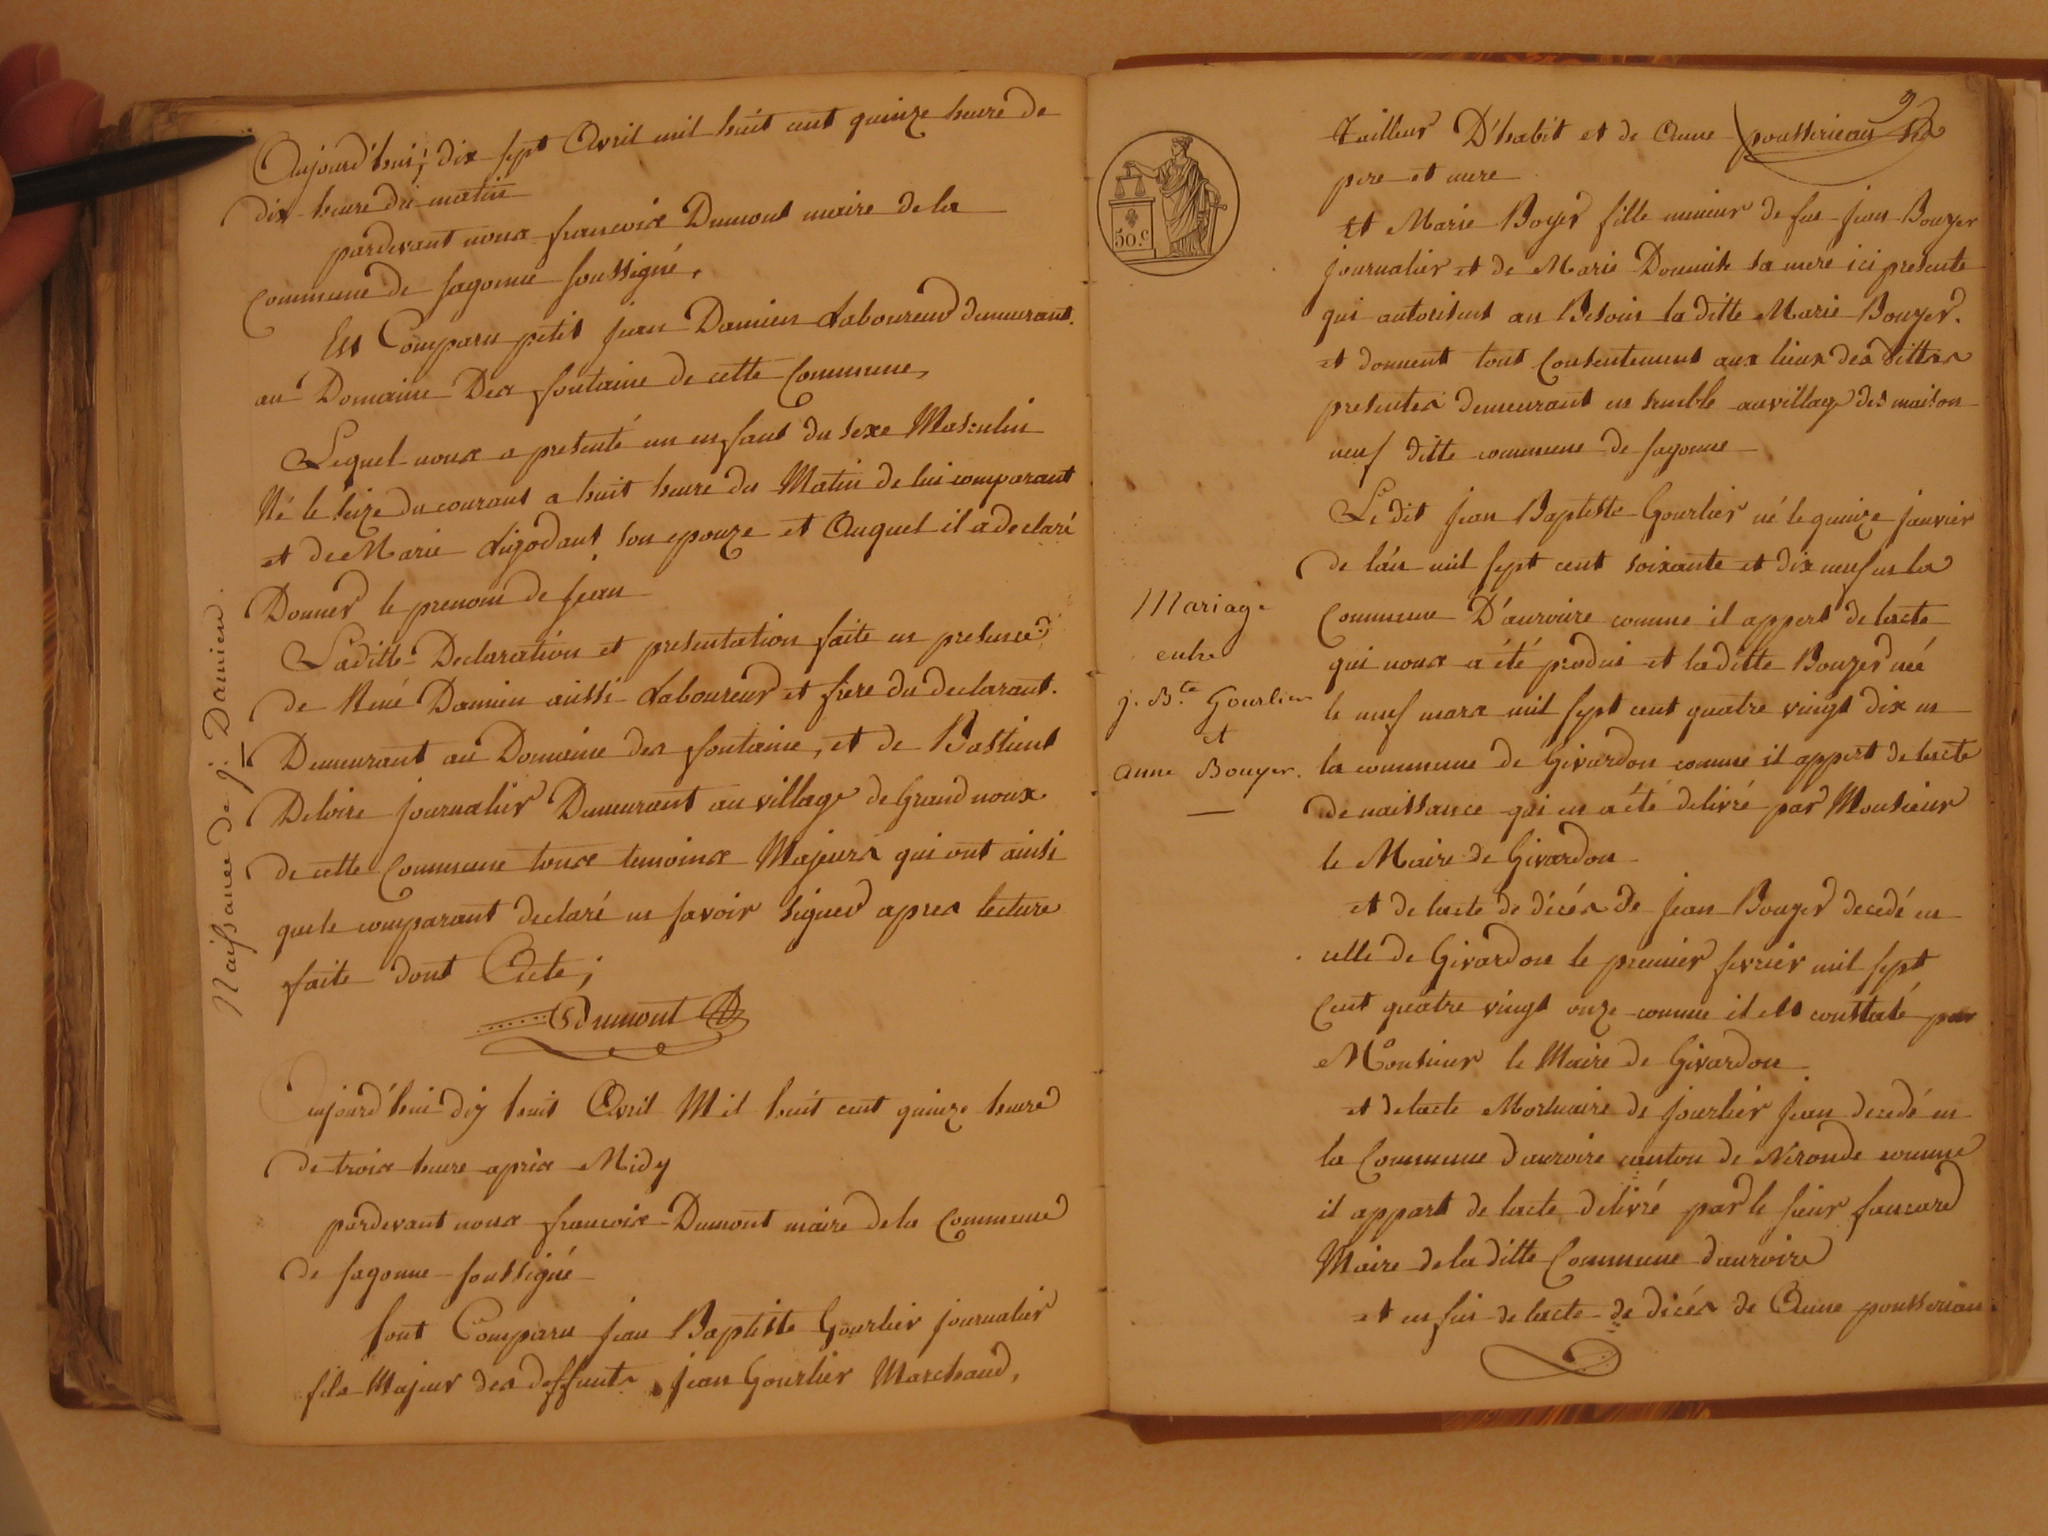 Aujourd'hui, dix sept Avril mil huit cent quinze heure de
dix heure du matin
pardevant nous francois Dumont maire de la
Commune de sagonne soussigné,
Est Comparu petit jean Damien Laboureur demeurant
au Domaine Des fontaine de cette Commune,
Lequel nous a presenté un enfant du sexe Masculin
Né le seize du courant a huit heure du Matin de lui comparant
et de Marie Ligodant son epouze et Auquel il a declaré
Donner le prenom de jean
Laditte Declaration et presentation faite en presence
de René Damien aussi Laboureur et frere du declarant.
Demeurant au Domaine des fontaine, et de Bastient
Deloire journalier Demeurant au village de Grand noux
de cette Commune tous temoins Majeurs qui ont ainsi
que le comparant declaré ne savoir signer apres lecture
faite dont Acte;
Dumont
Naissance de j. Damien.
Aujourd'hui dix huit Avril Mil huit cent quinze heure
de trois heure après Midy
pardevant nous francois Dumont maire de la Commune
de sagonne soussigné
sont Comparu jean Baptiste Gourlier journalier
fils Majeur des deffunts jean Gourlier Marchand,
9
50.c
tailleur D'habit et de Anne pousserieau ses
pere et mere
Et Marie Boyer fille mineur de feu jean Bouyer
journalier et de Marie Doumik sa mere ici presente
qui autorisent au Besoin la ditte Marie Bouyer.
et donnent tout Consentement aux lieux des dittes
presentes demeurant en semble au village des maison
neuf ditte commune de sagonne
Le dit jean Baptiste Gourlier né le quinze janvier
de l'an mil sept cent soixante et dix neuf en la
Commune D'auroire comme il appert de lacte
qui nous a été produi et la ditte Bouyer née
le neuf mars mil sept cent quatre vingt dix en
la commune de Givardon comme il appert de lacte
de naissance qui en a été delivré par Monsieur
le Maire de Givardon
et de lacte de décés de jean Bouyer decedé en
celle de Givardon le premier fevrier mil sept
Cent quatre vingt onze comme il est constaté par
Monsieur le Maire de Givardon
et de lacte Mortuaire de jourlier jean decedé en
la Commune dauroire canton de Neronde comme
il appart de lacte delivré par le sieur faucard
Maire de la ditte Commune dauroire
et en fin de lacte de décés de Anne pousserieau
Mariage
entre
j. B.te Gourlier
et
anne Bouyer.